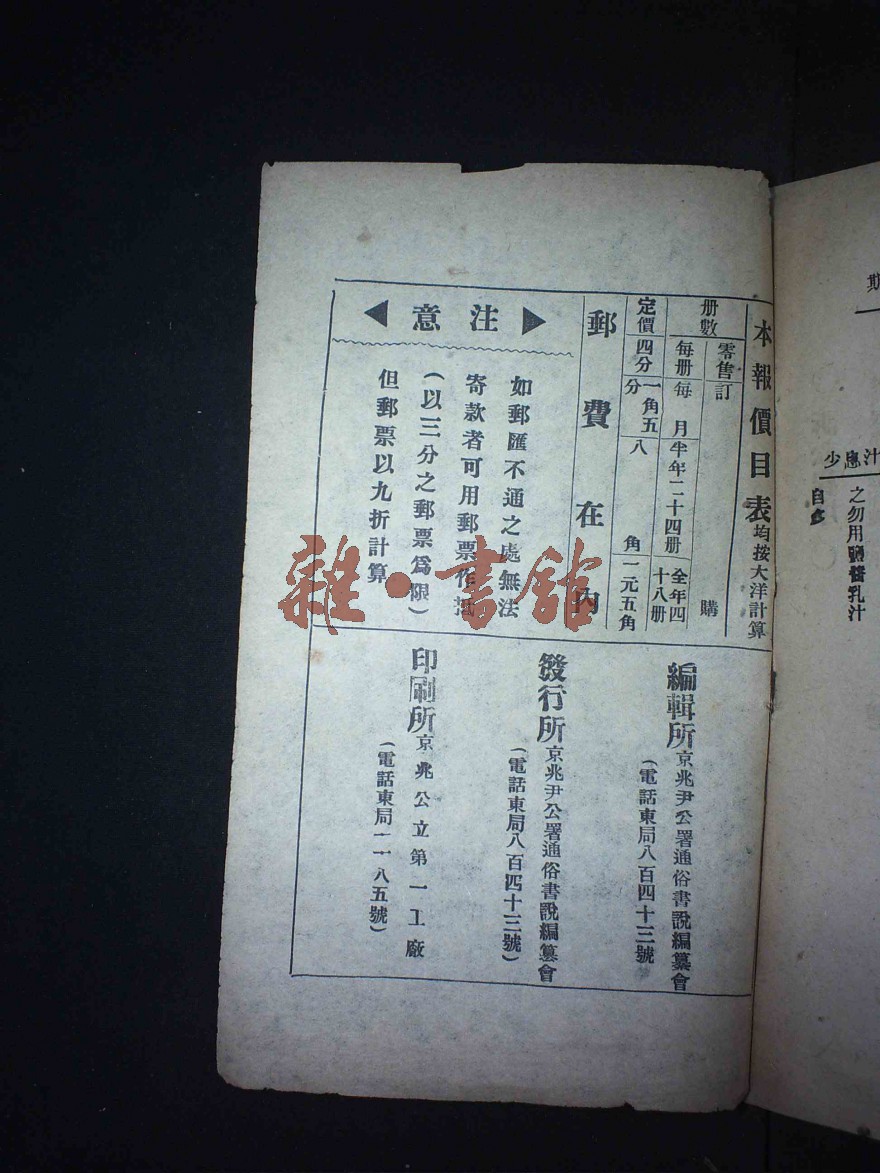 期
汁應少
之勿用鹽醬乳汁
自
本報價目表均按大洋計算
册數
零售
訂購
每册
每月
半年二十四册
全年四十八册
定價
四分
一角五分
八角
一元五角
郵費在內
注意
如郵匯不通之處無法
寄款者可用郵票作抵
(以三分之郵票爲限)
但郵票以九折計算
編輯所京兆尹公署通俗書說編纂會
(電話東局八百四十三號
發行所京兆尹公署通俗書說編纂會
(電話東局八百四十三號)
印刷所京兆公立第一工廠
(電話東局一一八五號)
雜·書館